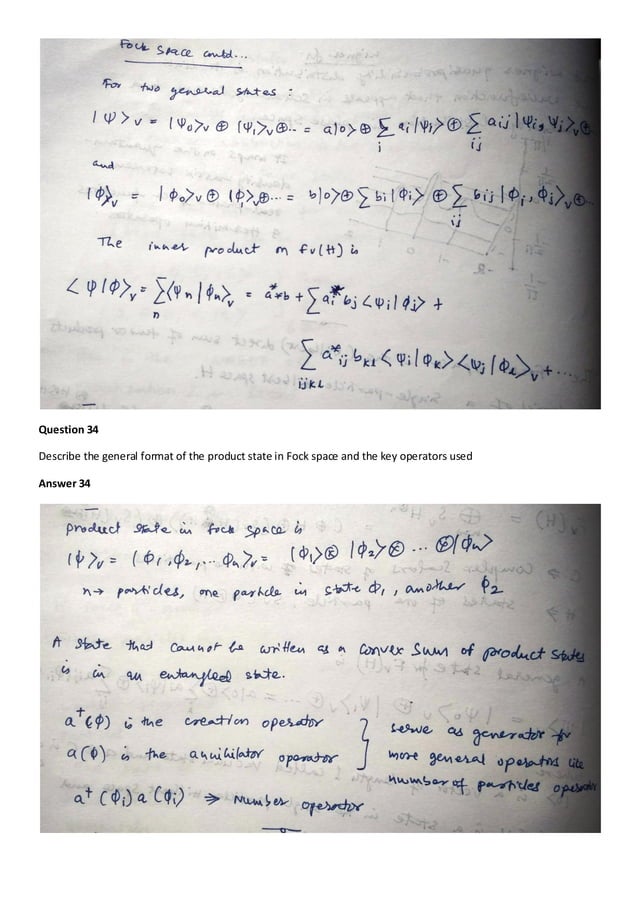 Fock space contd...
For two general states :
|Ψ>ᵥ = |Ψ₀>ᵥ ⊕ |Ψ₁>ᵥ ⊕... = a|0> ⊕ ∑ᵢ aᵢ|Ψᵢ> ⊕ ∑ᵢⱼ aᵢⱼ|Ψᵢ, Ψⱼ>ᵥ ⊕
and
|Φ>ᵥ = |Φ₀>ᵥ ⊕ |Φ₁>ᵥ ⊕... = b|0> ⊕ ∑ bᵢ|Φᵢ> ⊕ ∑ᵢⱼ bᵢⱼ|Φᵢ, Φⱼ>ᵥ ⊕..
The inner product on Fv(H) is
<Ψ|Φ>ᵥ = ∑ₙ <Ψₙ|Φₙ>ᵥ = a*b + ∑ aᵢ* bⱼ <Ψᵢ|Φⱼ> +
∑ijkl a*ᵢⱼ bₖₗ <Ψᵢ|Φₖ> <Ψⱼ|Φₗ>ᵥ + ....
Question 34
Describe the general format of the product state in Fock space and the key operators used
Answer 34
product state in Fock space is
|Ψ>ᵥ = |Φ₁, Φ₂, ... Φₙ>ᵥ = |Φ₁> ⊗ |Φ₂> ⊗ ... ⊗ |Φₙ>
n → particles, one particle in state Φ₁, another Φ₂
A state that cannot be written as a convex sum of product states
is in an entangled state.
a⁺(Φ) is the creation operator } serve as generator for
a(Φ) is the annihilator operator } more general operators like
number of particles operator
a⁺(Φᵢ) a(Φᵢ) ⇒ Number operator